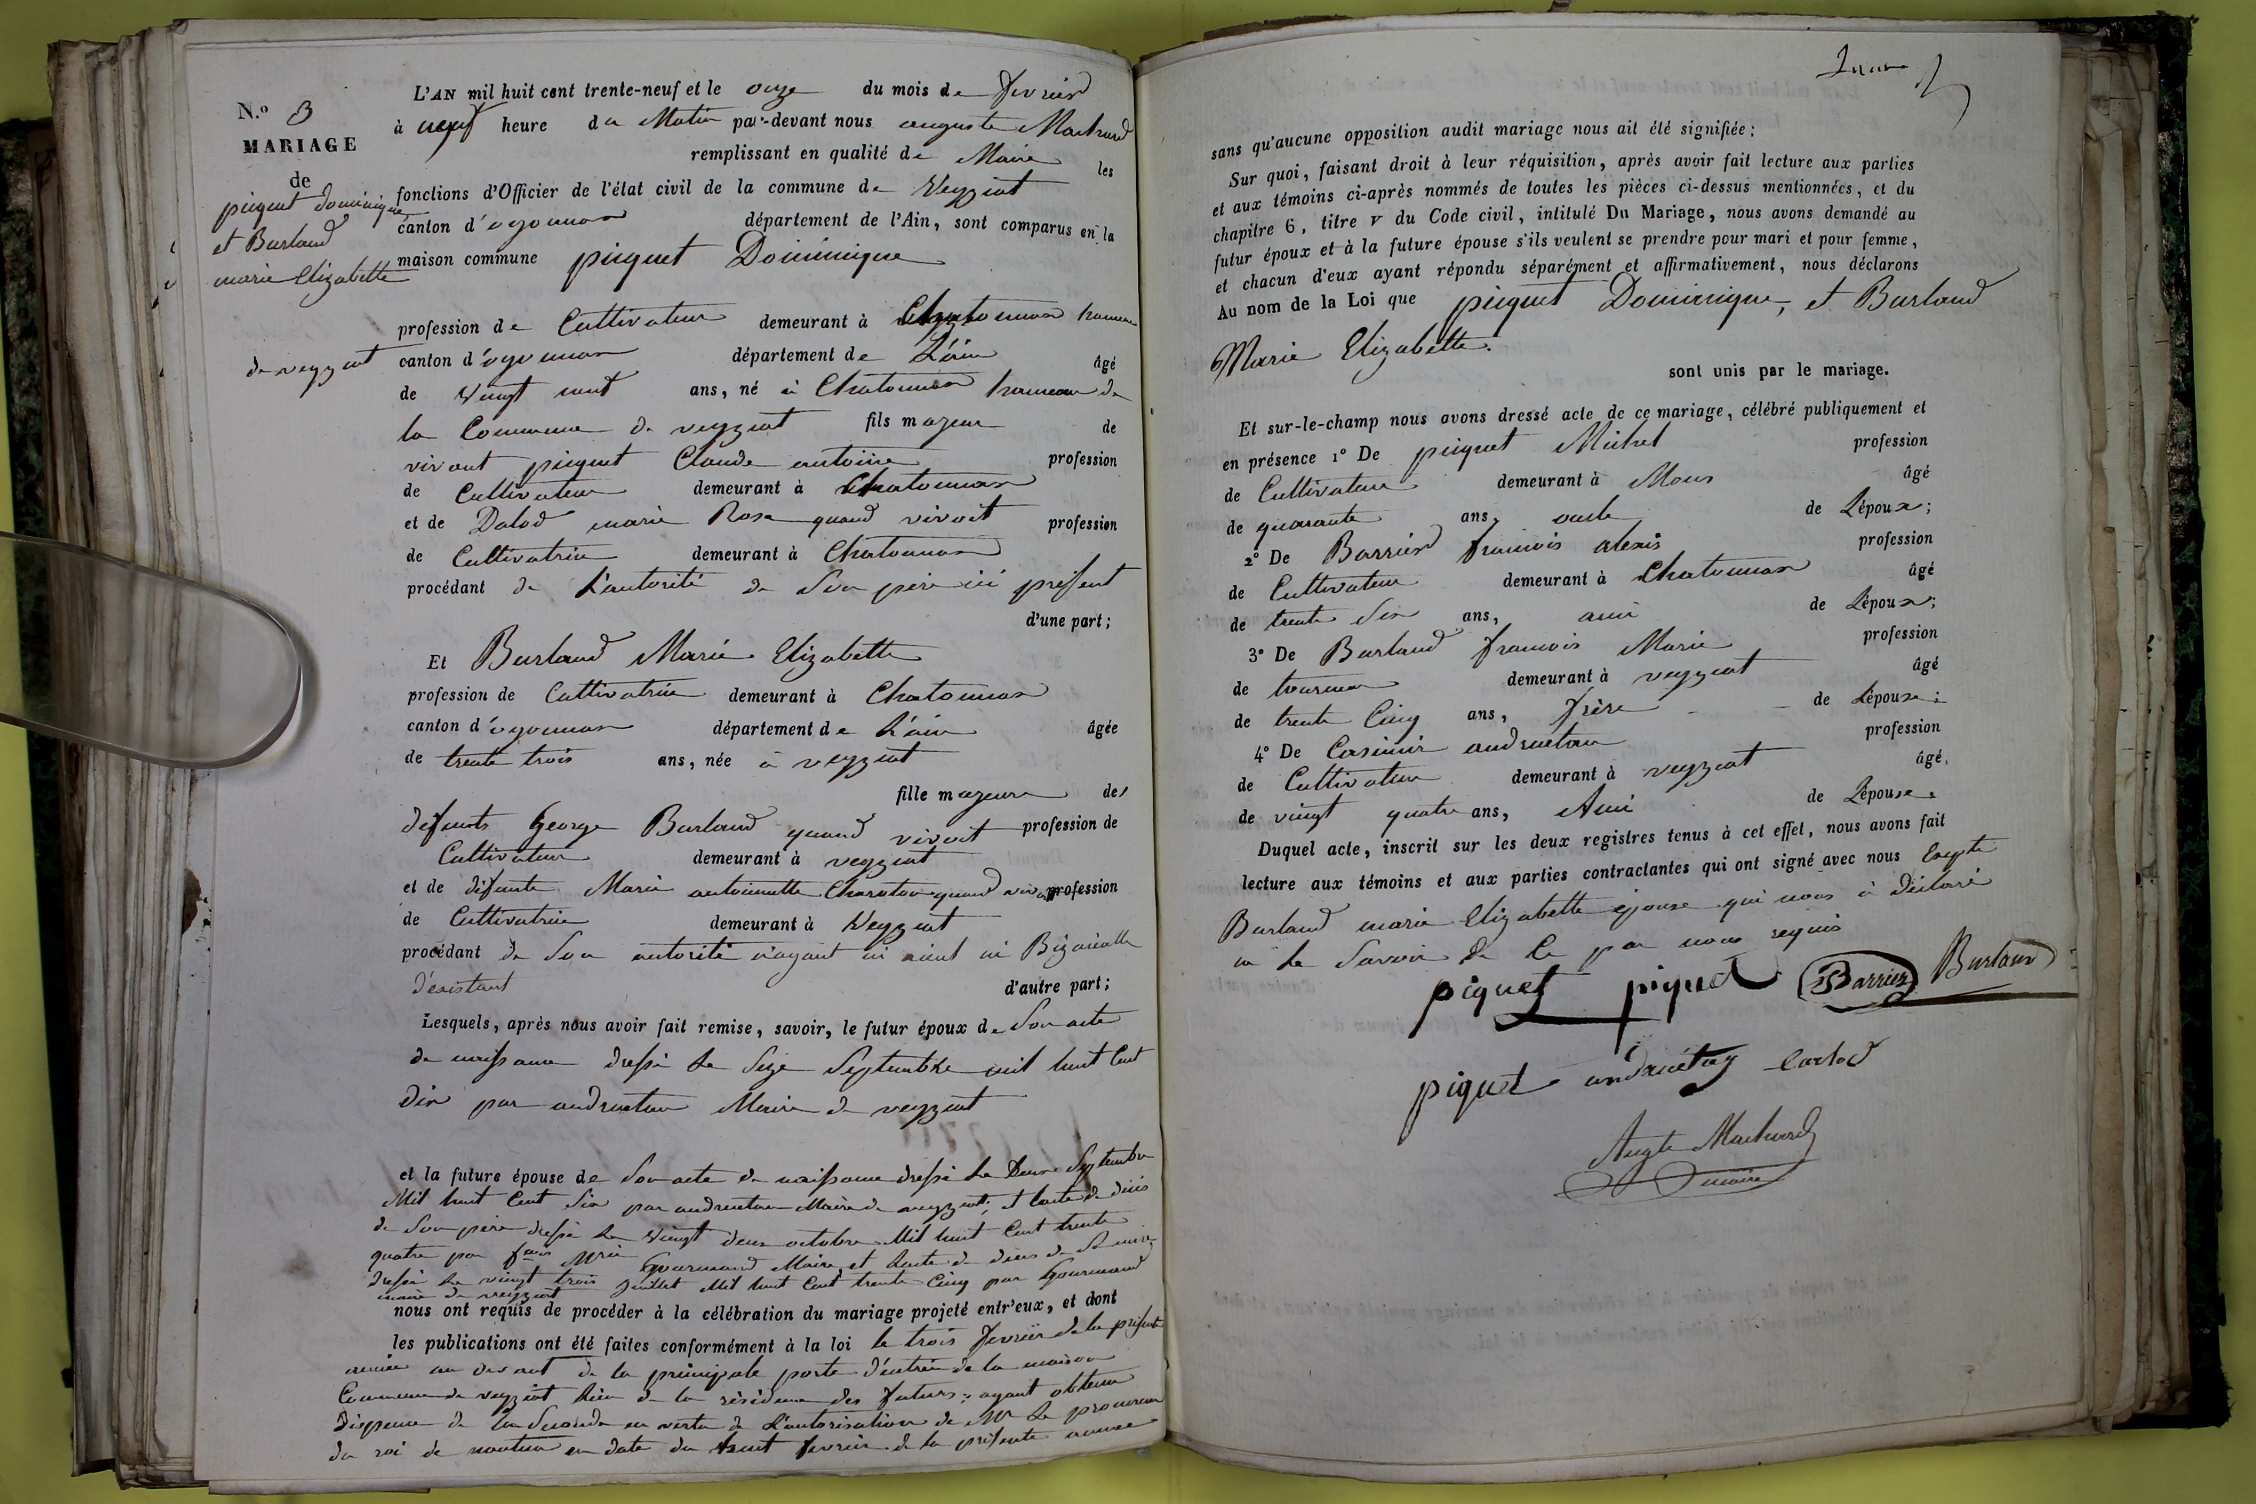 N.o 3
MARIAGE
de
piquet dominique
et Burland
marie Elizabette
L'AN mil huit cent trente-neuf et le onze du mois de fevrier
à neuf heure du Matin par-devant nous auguste Machurd
remplissant en qualité de Maire les
fonctions d'Officier de l'état civil de la commune de Veyziat
canton d'oyonnax département de l'Ain, sont comparus en la
maison commune piquet Dominique
profession de Cultivateur demeurant à Chatonnax hameau
de veyziat canton d'oyonnax département de L'ain âgé
de vingt neuf ans, né à Chatonnax hameau de
la Commune de veyziat fils majeur de
vivant piquet Claude antoine profession
de Cultivateur demeurant à Chatonnax
et de Dalod marie Rose quand vivoit profession
de Cultivatrice demeurant à Chatonnax
procédant de L'autorité de Son père ici présent
d'une part;
Et Burland Marie Elizabette
profession de Cultivatrice demeurant à Chatonnax
canton d'oyonnax département de L'ain âgée
de trente trois ans, née à veyziat
fille majeure des
défunts George Burland quand vivoit profession de
Cultivateur demeurant à veyziat
et de défunte Marie antoinette Charoton quand vivoit profession
de Cultivatrice demeurant à Veyziat
procédant de Son autorité n'ayant ni aieul ni Bizaieulle
d'existant d'autre part;
Lesquels, après nous avoir fait remise, savoir, le futur époux de Son acte
de naissance dressé le Seize Septembre mil huit Cent
dix par andruetan Maire de veyziat
et la future épouse de Son acte de naissance dressé le Deux Septembre
Mil huit Cent Six par andruetan Maire de veyziat, et lacte de décès
de Son père dressé le vingt deux octobre Mil huit Cent trente
quatre par fois Mrie Gourmand Maire et lacte de décès de Sa mère
dressé le vingt trois Juillet Mil huit Cent trente Cinq par Gourmand
maire de veyziat
nous ont requis de procéder à la célébration du mariage projeté entr'eux, et dont
les publications ont été faites conformément à la loi le trois fevrier de la présente
année au devant de la principale porte d'entrée de la maison
Commune de veyziat lieu de la résidence des futurs; ayant obtenu
dispense de la Seconde en vertu de L'autorisation de Mr le procureur
du roi de nantua en date du huit fevrier de la présente année
sans qu'aucune opposition audit mariage nous ait été signifiée;
Sur quoi, faisant droit à leur réquisition, après avoir fait lecture aux parties
et aux témoins ci-après nommés de toutes les pièces ci-dessus mentionnées, et du
chapitre 6, titre V du Code civil, intitulé Du Mariage, nous avons demandé au
futur époux et à la future épouse s'ils veulent se prendre pour mari et pour femme,
et chacun d'eux ayant répondu séparément et affirmativement, nous déclarons
Au nom de la Loi que piquet Dominique, et Burland
Marie Elizabette.
sont unis par le mariage.
Et sur-le-champ nous avons dressé acte de ce mariage, célébré publiquement et
en présence 1° De piquet Michel profession
de Cultivateur demeurant à Mons âgé
de quarante ans, oncle de Lépoux;
2° De Barrier françois alexis profession
de Cultivateur demeurant à Chatonnax âgé
de trente Six ans, ami de Lépoux;
3° De Burland françois Marie profession
de tourneur demeurant à veyziat âgé
de trente Cinq ans, frère de Lépouse;
4° De Casimir andruetan profession
de Cultivateur demeurant à veyziat âgé.
de vingt quatre ans, Ami de Lépouse.
Duquel acte, inscrit sur les deux registres tenus à cet effet, nous avons fait
lecture aux témoins et aux parties contractantes qui ont signé avec nous Excepte
Burland marie Elizabette épouse qui nous à déclaré
ne le Savoir de Ce par nous requis
piquet piquet Barrier Burland
piquet andruétan
Augte Machurd
maire